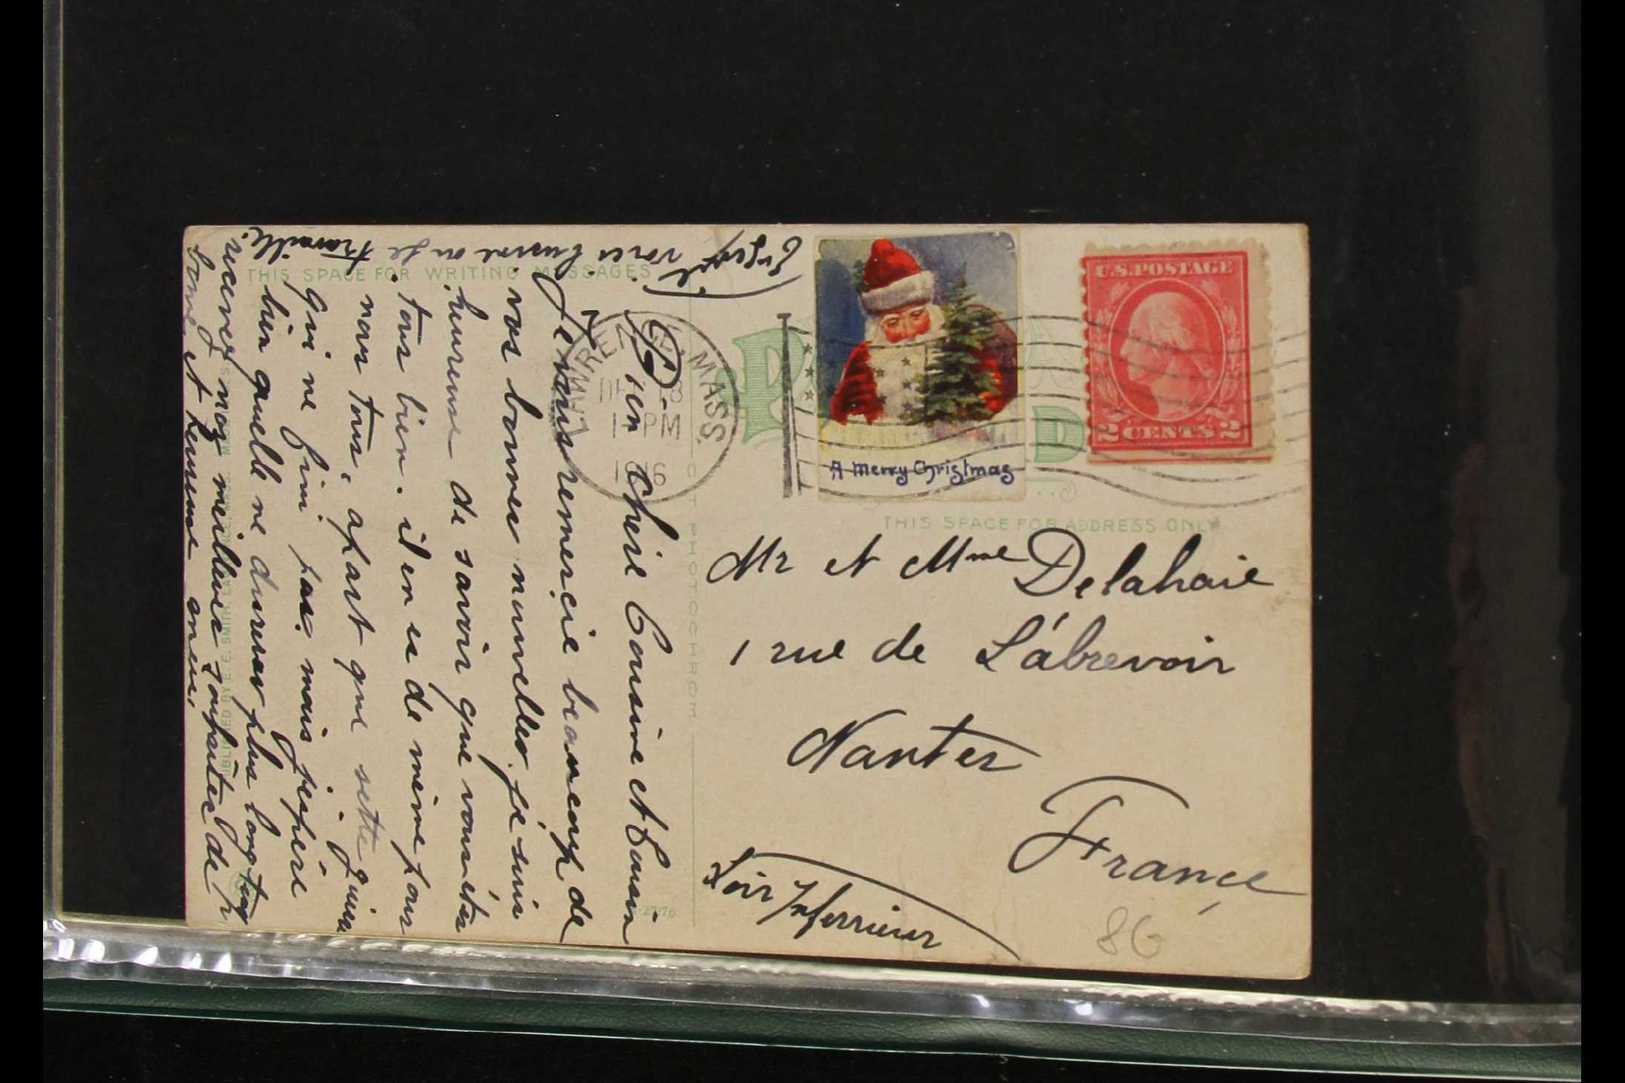 THIS SPACE FOR WRITING MESSAGES
Bien chère Cousine et Cousin
Je vous remercie beaucoup de
vos bonnes nouvelles. je suis
heureuse de savoir que vous êtes
tous bien. il en es de même pour
nous tous, apart que sette guerre
qui ne fini pas. mais j'espère
bien quelle ne durera plus longtemp
recevez nos meilleurs souhaites de
bonne et heureuse année.
voici l'usine ou je travaille.
LAWRENCE, MASS.
PM
1916
A Merry Christmas
U.S. POSTAGE
2 CENTS 2
THIS SPACE FOR ADDRESS ONLY
Mr et Mme Delahaie
1 rue de L'abrevoir
Nantes
France
Loir Inferrieur
86